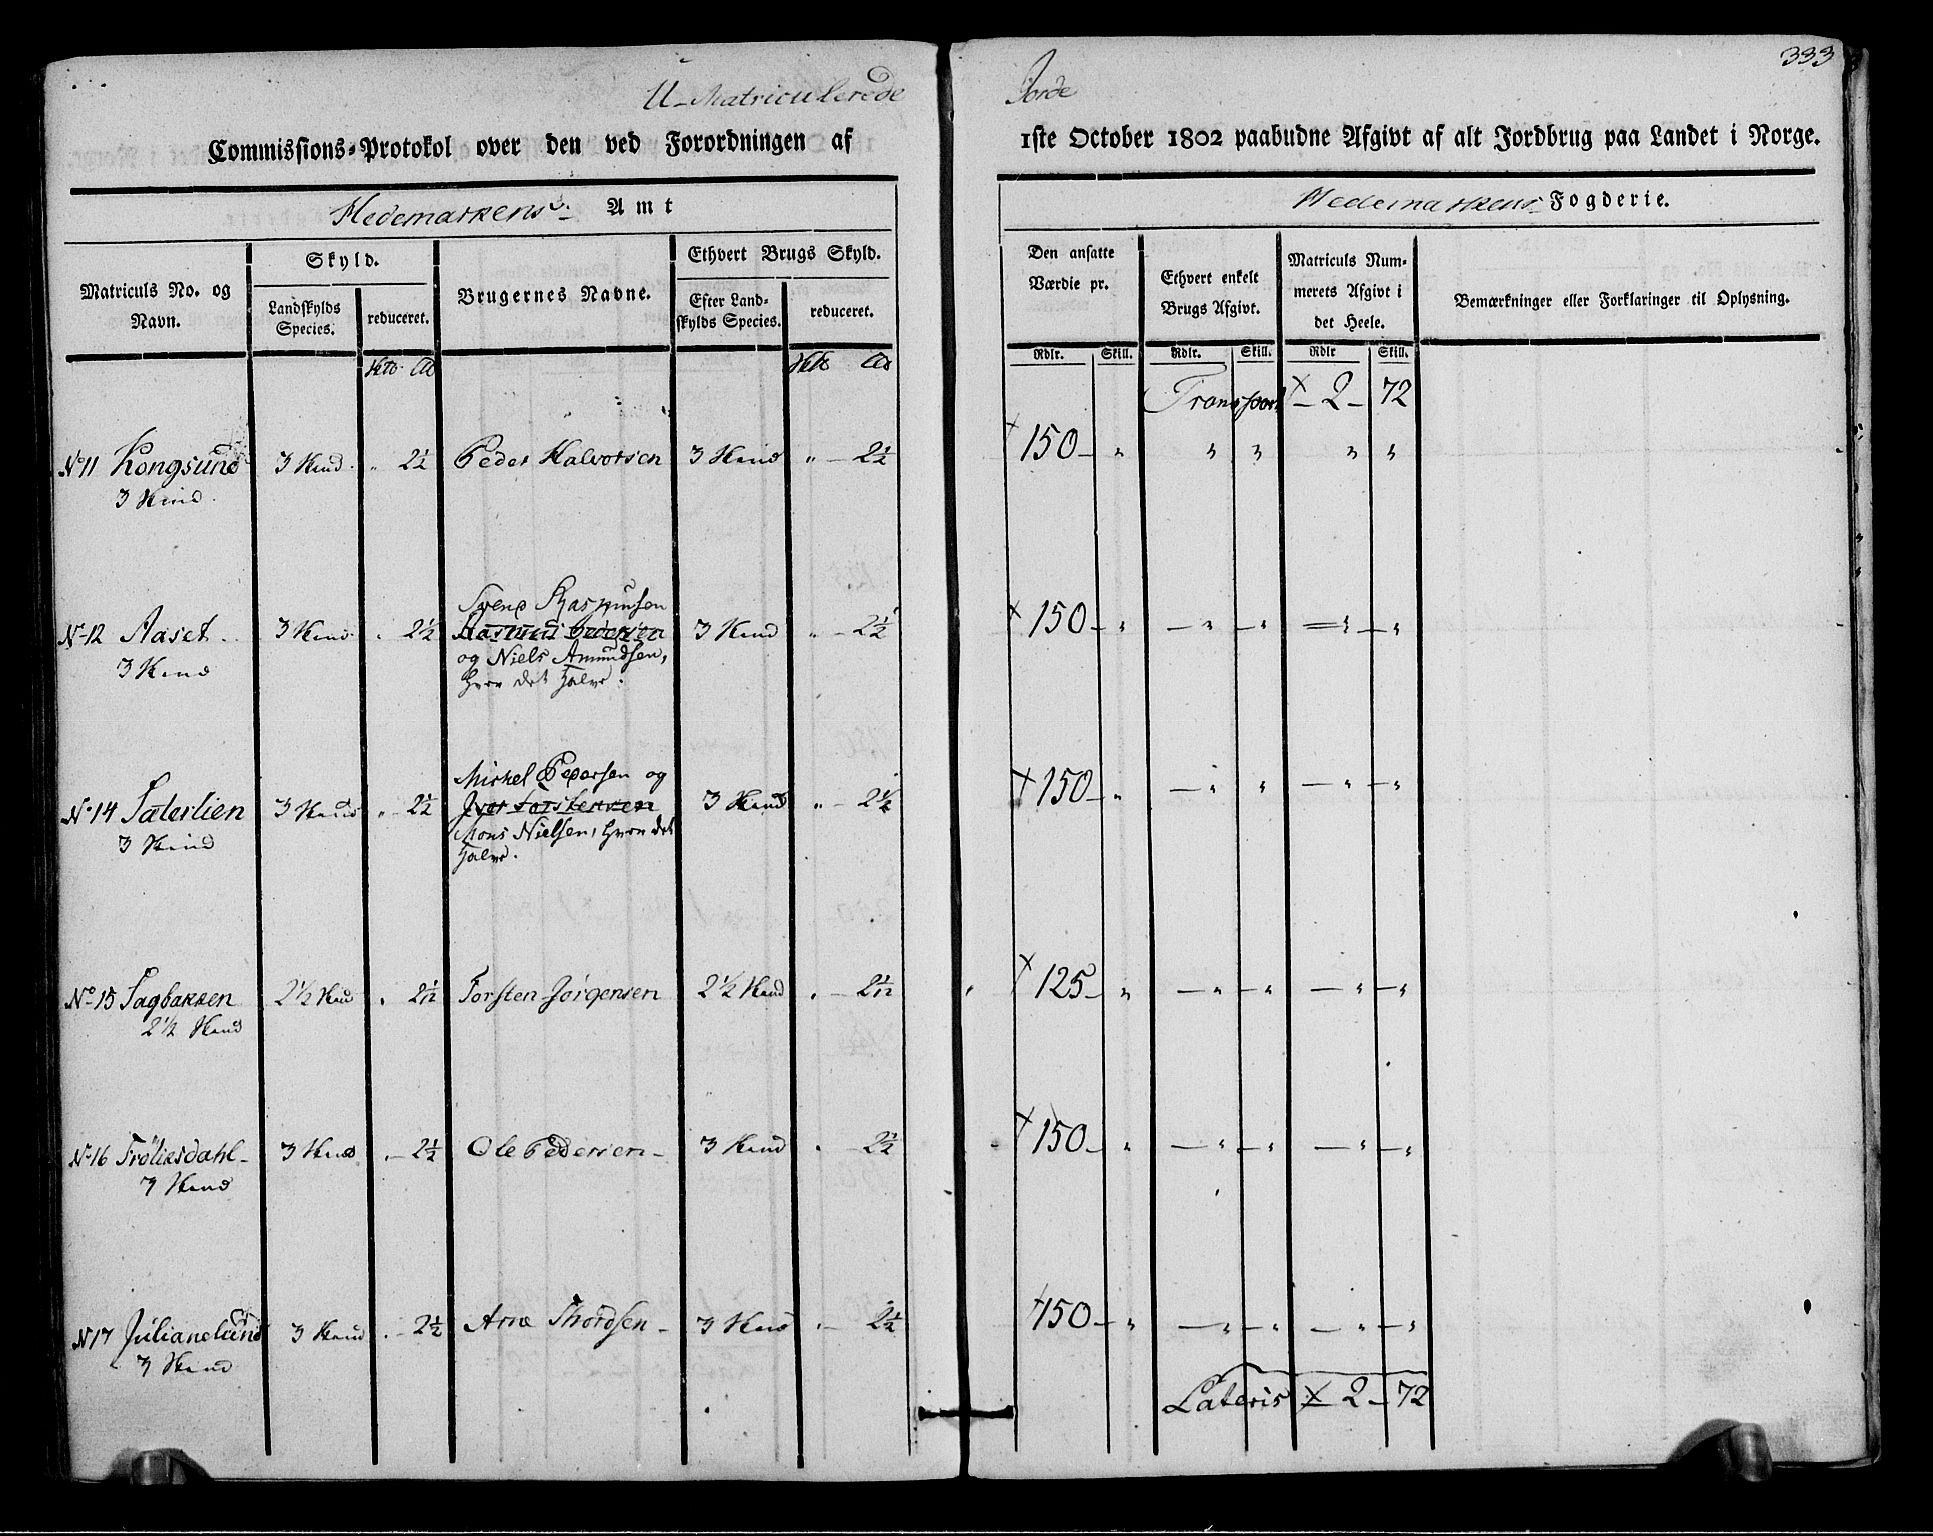 333
U-Matriculerede Jorde
Commissions-Protokol over den ved Forordningen af 1ste October 1802 paabudne Afgivt af alt Jordbrug paa Landet i Norge.
Hedemarkens Amt
Hedemarkens Fogderie.
Matriculs No. og Navn.
Skyld.
Landskylds Species.
reduceret.
Brugernes Navne.
Ethvert Brugs Skyld.
Efter Landskylds Species.
reduceret.
Den ansatte Værdie pr.
Ethvert enkelt Brugs Afgivt.
Matriculs Nummerets Afgivt i det Heele.
Bemærkninger eller Forklaringer til Oplysning.
Rdlr. Skill. Rdlr. Skill. Rdlr Skill.
Transport 2 - 72
No 11 Kongsund 3 Hud. " 2½ Peder Halvorsen 3 Hud " - 2½ 150 - " " " " "
3 Hud.
Svend Rasmusen
No 12 Aaset. 3 Hud. " 2½ Rasmus Pedersen 3 Hud " - 2½ 150 - " - " - " - " - "
3 Hud
og Niels Amundsen,
hver det halve.
Mickel Pedersen og
No 14 Sæterlien 3 Hud " - 2½ Iver Torstensen 3 Hud " - 2½ 150 - " - " " - " - "
3 Hud
Mons Nielsen, hver det
halve.
No 15 Sagbakken 2½ Hud " 2 1/12 Torsten Jørgensen 2½ Hud " - 2 1/12 125 - " - " - " - " - "
2½ Hud
No 16 Frøliesdahl - 3 Hud " - 2½ Ole Pedersen - 3 Hud " 2½ 150 - " - " - " - " - "
3 Hud
No 17 Julianelund 3 Hud " - 2½ Arne Thordsen - 3 Hud " - 2½ 150 - " - " - " - " - "
3 Hud
Lateris 2 - 72